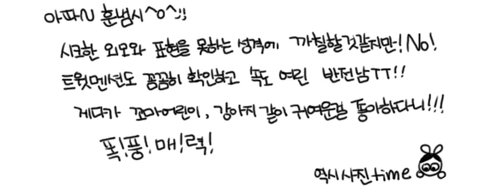 아파N 훈남시^o^;;
시크한 외모와 표현을 못하는 성격에 까칠할것같지만! No!
트윗멘션도 꼼꼼히 확인하고 속도 여린 반전남TT!!
게다가 꼬마어린이, 강아지 같이 귀여운걸 좋아하다니!!!
폭!풍!매!력!
역시사진time